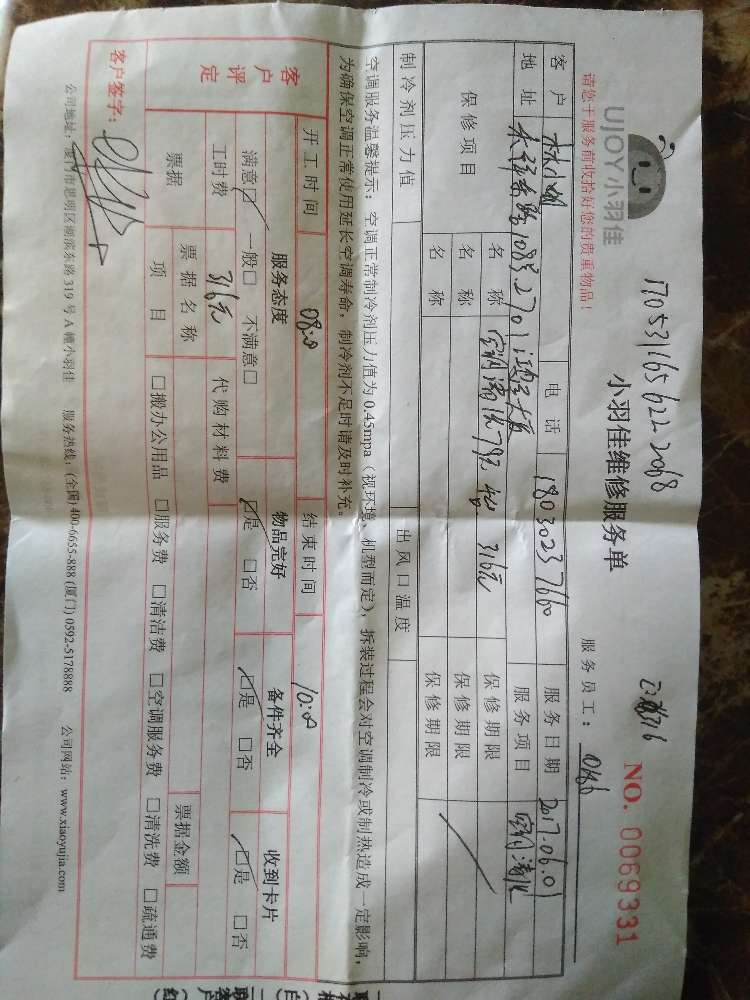 UJOY小羽佳
170531165622 2068
请您于服务前收拾好您的贵重物品！
小羽佳维修服务单
NO. 0069331
服务员工： 0186
客户 电话 18030237660 服务日期 2017.06.01
地址 1083.2701 服务项目 空调清洗
保修项目 名称 空调清洗 316元 保修期限
名称 保修期限
名称 保修期限
制冷剂压力值 出风口温度
空调服务温馨提示：空调正常制冷剂压力值为0.45mpa（视环境、机型而定），拆装过程会对空调制冷或制热造成一定影响，
为确保空调正常使用延长空调寿命，制冷剂不足时请及时补充。
开工时间 08:00 结束时间 10:00
客户评定 服务态度 物品完好 备件齐全 收到卡片
满意☑ 一般□ 不满意□ ☑是 □否 ☑是 □否 ☑是 □否
工时费 316元 代购材料费
票据 票据名称 票据金额
项目 □搬办公用品 □服务费 □清洁费 □空调服务费 □清洗费 □疏通费
客户签字：
公司地址：厦门市思明区湖滨东路319号A幢小羽佳 服务热线：(全国)400-6655-888 (厦门) 0592-5178888 公司网站：www.xiaoyujia.com